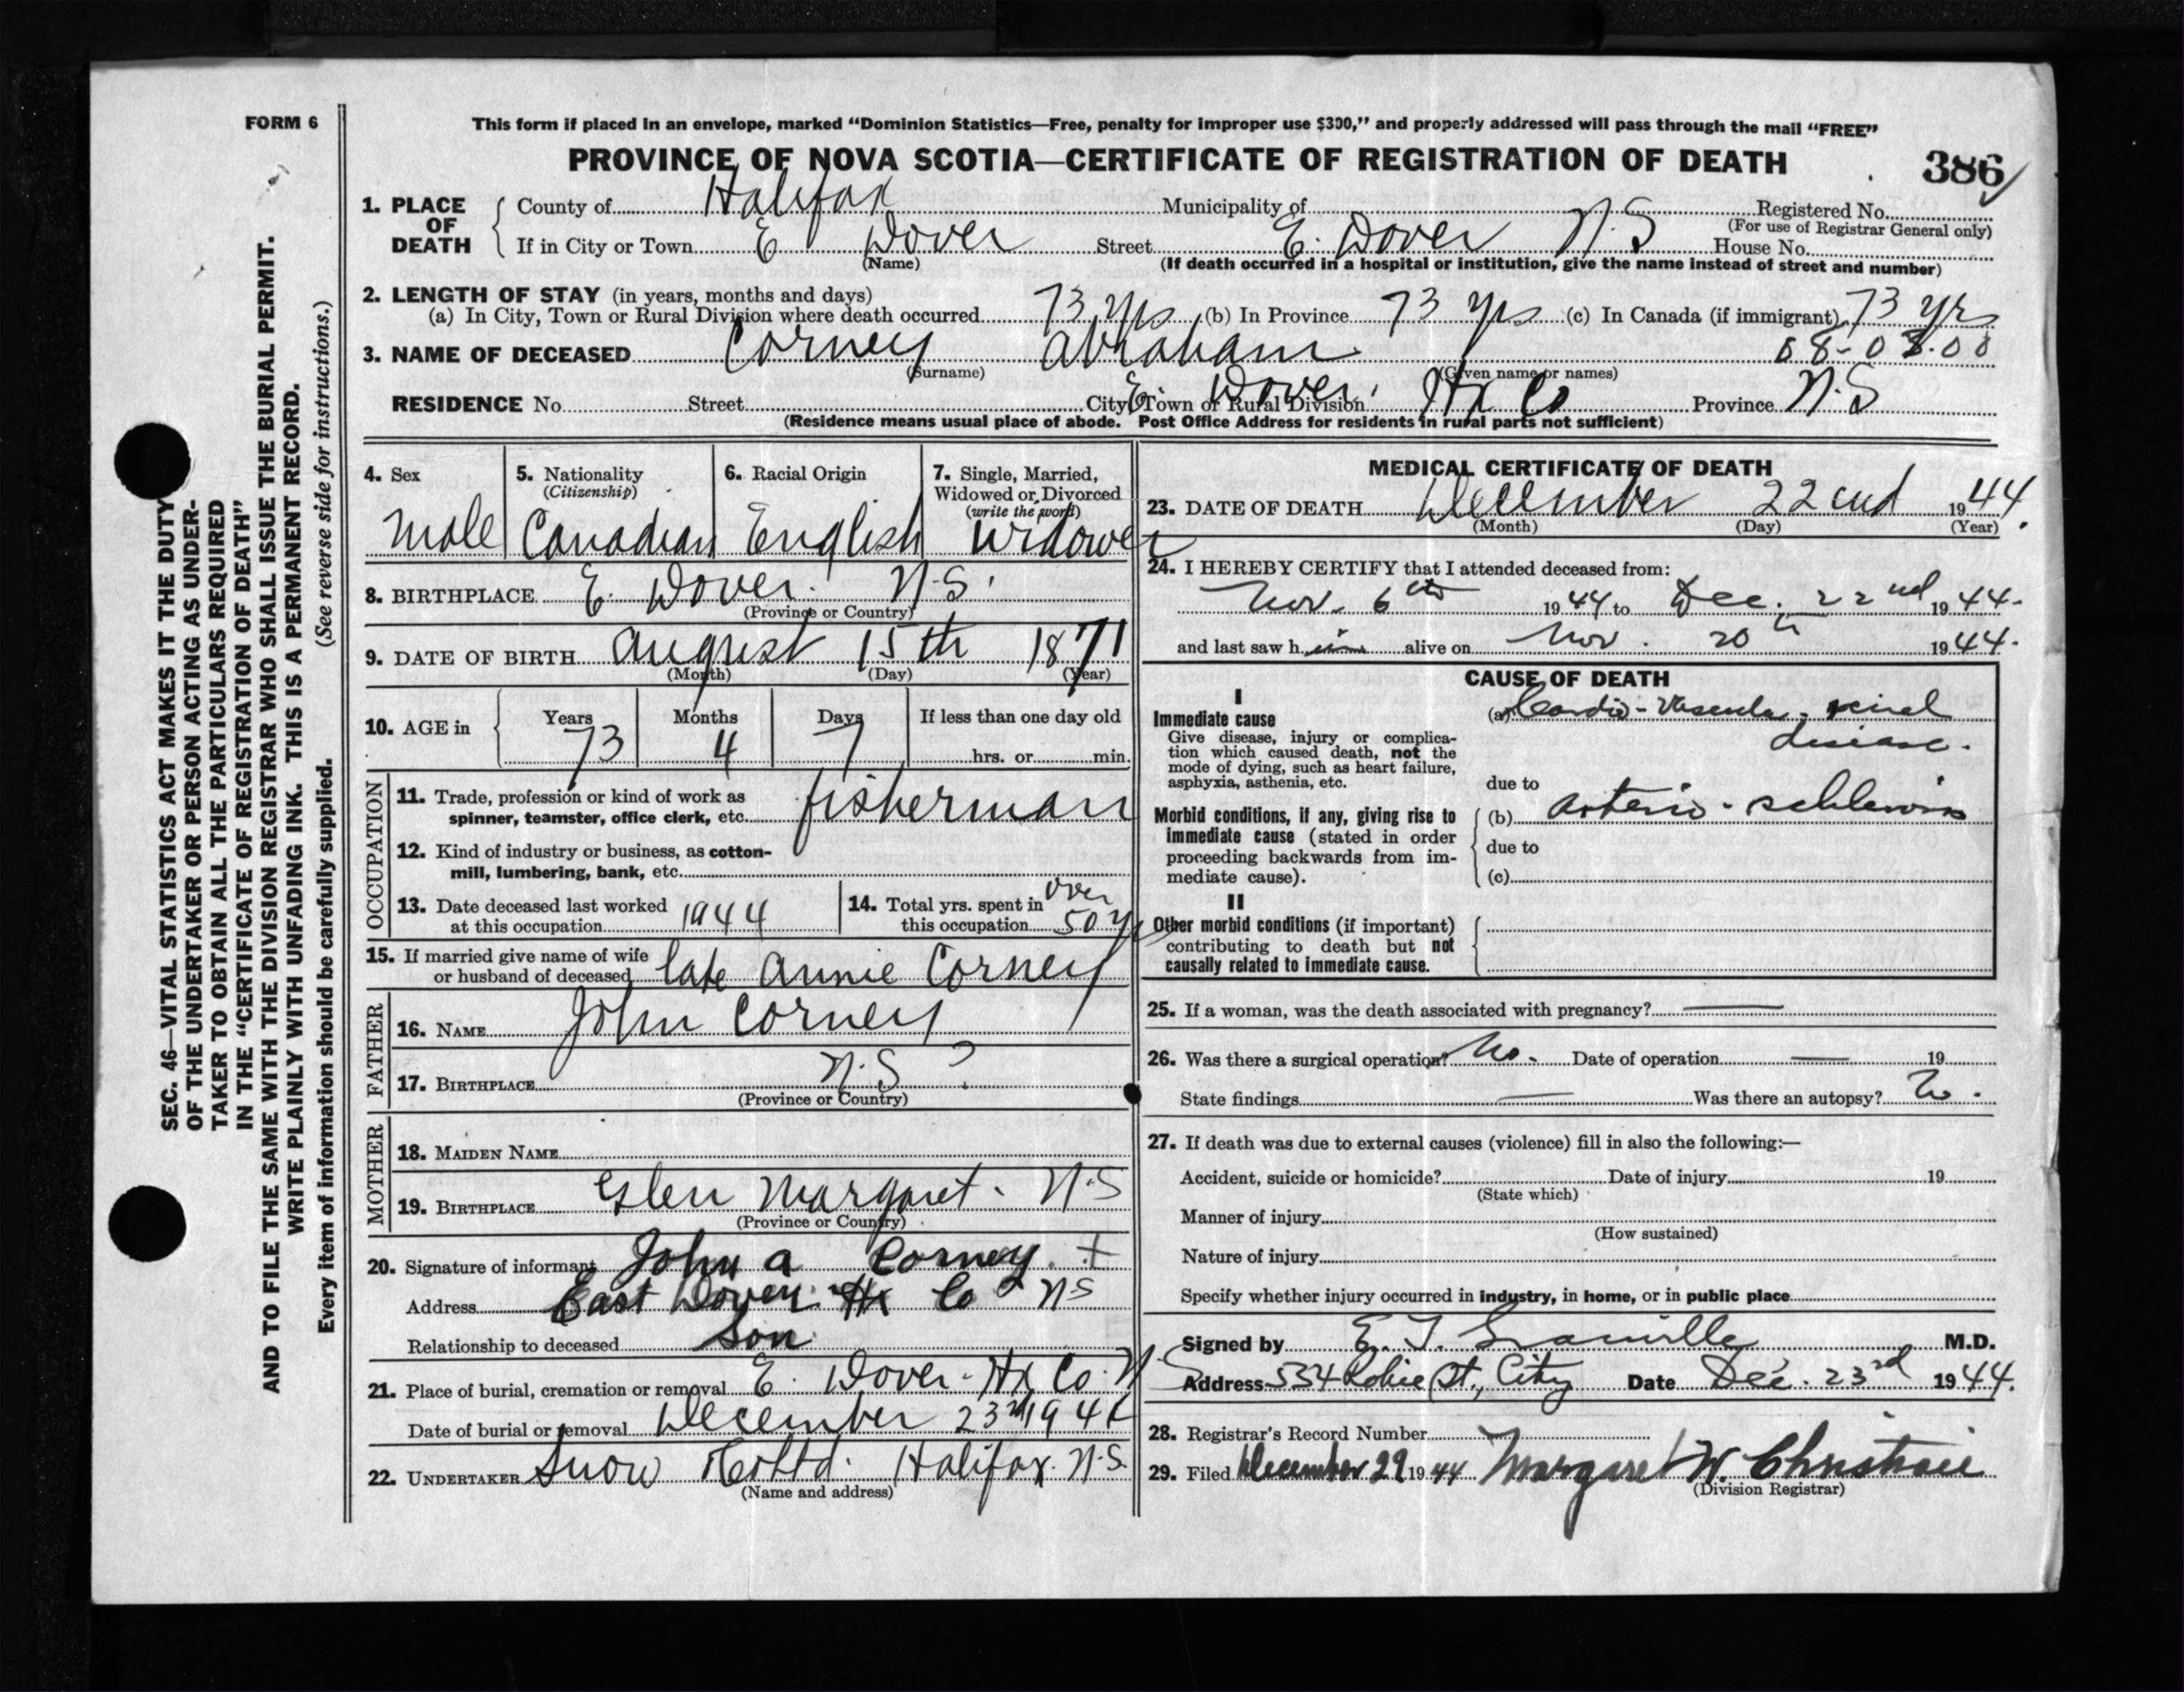 FORM 6
This form if placed in an envelope, marked "Dominion Statistics—Free, penalty for improper use $300," and properly addressed will pass through the mail "FREE"
PROVINCE OF NOVA SCOTIA—CERTIFICATE OF REGISTRATION OF DEATH
386
1. PLACE OF DEATH
County of Halifax Municipality of Registered No.
(For use of Registrar General only)
If in City or Town E Dover Street E. Dover N.S House No.
(Name)
(If death occurred in a hospital or institution, give the name instead of street and number)
2. LENGTH OF STAY (in years, months and days)
(a) In City, Town or Rural Division where death occurred 73 yrs (b) In Province 73 yrs (c) In Canada (if immigrant) 73 yrs
3. NAME OF DECEASED Corney Abraham
(Surname) (Given name or names)
RESIDENCE No. Street City, Town or Rural Division E. Dover. Hx Co Province N.S
(Residence means usual place of abode. Post Office Address for residents in rural parts not sufficient)
4. Sex
male
5. Nationality
(Citizenship)
Canadian
6. Racial Origin
English
7. Single, Married,
Widowed or Divorced
(write the word)
Widower
8. BIRTHPLACE E. Dover. N.S.
(Province or Country)
9. DATE OF BIRTH August 15th 1871
(Month) (Day) (Year)
10. AGE in Years Months Days If less than one day old
73 4 7 hrs. or min.
OCCUPATION
11. Trade, profession or kind of work as
spinner, teamster, office clerk, etc. fisherman
12. Kind of industry or business, as cotton-
mill, lumbering, bank, etc.
13. Date deceased last worked
at this occupation 1944
14. Total yrs. spent in over
this occupation 50 yrs
15. If married give name of wife
or husband of deceased late Annie Corney
FATHER
16. NAME John Corney
17. BIRTHPLACE N.S ?
(Province or Country)
MOTHER
18. MAIDEN NAME
19. BIRTHPLACE Glen Margaret. N.S
(Province or Country)
20. Signature of informant John A Corney. +
Address East Dover Hx Co NS
Relationship to deceased Son
21. Place of burial, cremation or removal E. Dover. Hx Co. N.S
Date of burial or removal December 23rd 1944
22. UNDERTAKER Snow & Co Ltd. Halifax. N.S.
(Name and address)
MEDICAL CERTIFICATE OF DEATH
23. DATE OF DEATH December 22nd 1944.
(Month) (Day) (Year)
24. I HEREBY CERTIFY that I attended deceased from:
Nov. 6th 1944 to Dec. 22nd 1944.
and last saw h im alive on Nov. 20th 1944.
CAUSE OF DEATH
I
Immediate cause
Give disease, injury or complica-
tion which caused death, not the
mode of dying, such as heart failure,
asphyxia, asthenia, etc.
(a) Cardio-Vascular-renal
disease.
due to
Morbid conditions, if any, giving rise to
immediate cause (stated in order
proceeding backwards from im-
mediate cause).
(b) arterio-
due to
(c)
II
Other morbid conditions (if important)
contributing to death but not
causally related to immediate cause.
25. If a woman, was the death associated with pregnancy? —
26. Was there a surgical operation? No. Date of operation — 19
State findings — Was there an autopsy? No.
27. If death was due to external causes (violence) fill in also the following:—
Accident, suicide or homicide? Date of injury 19
(State which)
Manner of injury
(How sustained)
Nature of injury
Specify whether injury occurred in industry, in home, or in public place
Signed by E. T. Granville M.D.
Address 534 Robie St., City Date Dec. 23rd 1944.
28. Registrar's Record Number
29. Filed December 29 1944 Margaret W. Christie
(Division Registrar)
SEC. 46—VITAL STATISTICS ACT MAKES IT THE DUTY
OF THE UNDERTAKER OR PERSON ACTING AS UNDER-
TAKER TO OBTAIN ALL THE PARTICULARS REQUIRED
IN THE "CERTIFICATE OF REGISTRATION OF DEATH"
AND TO FILE THE SAME WITH THE DIVISION REGISTRAR WHO SHALL ISSUE THE BURIAL PERMIT.
WRITE PLAINLY WITH UNFADING INK. THIS IS A PERMANENT RECORD.
Every item of information should be carefully supplied. (See reverse side for instructions.)